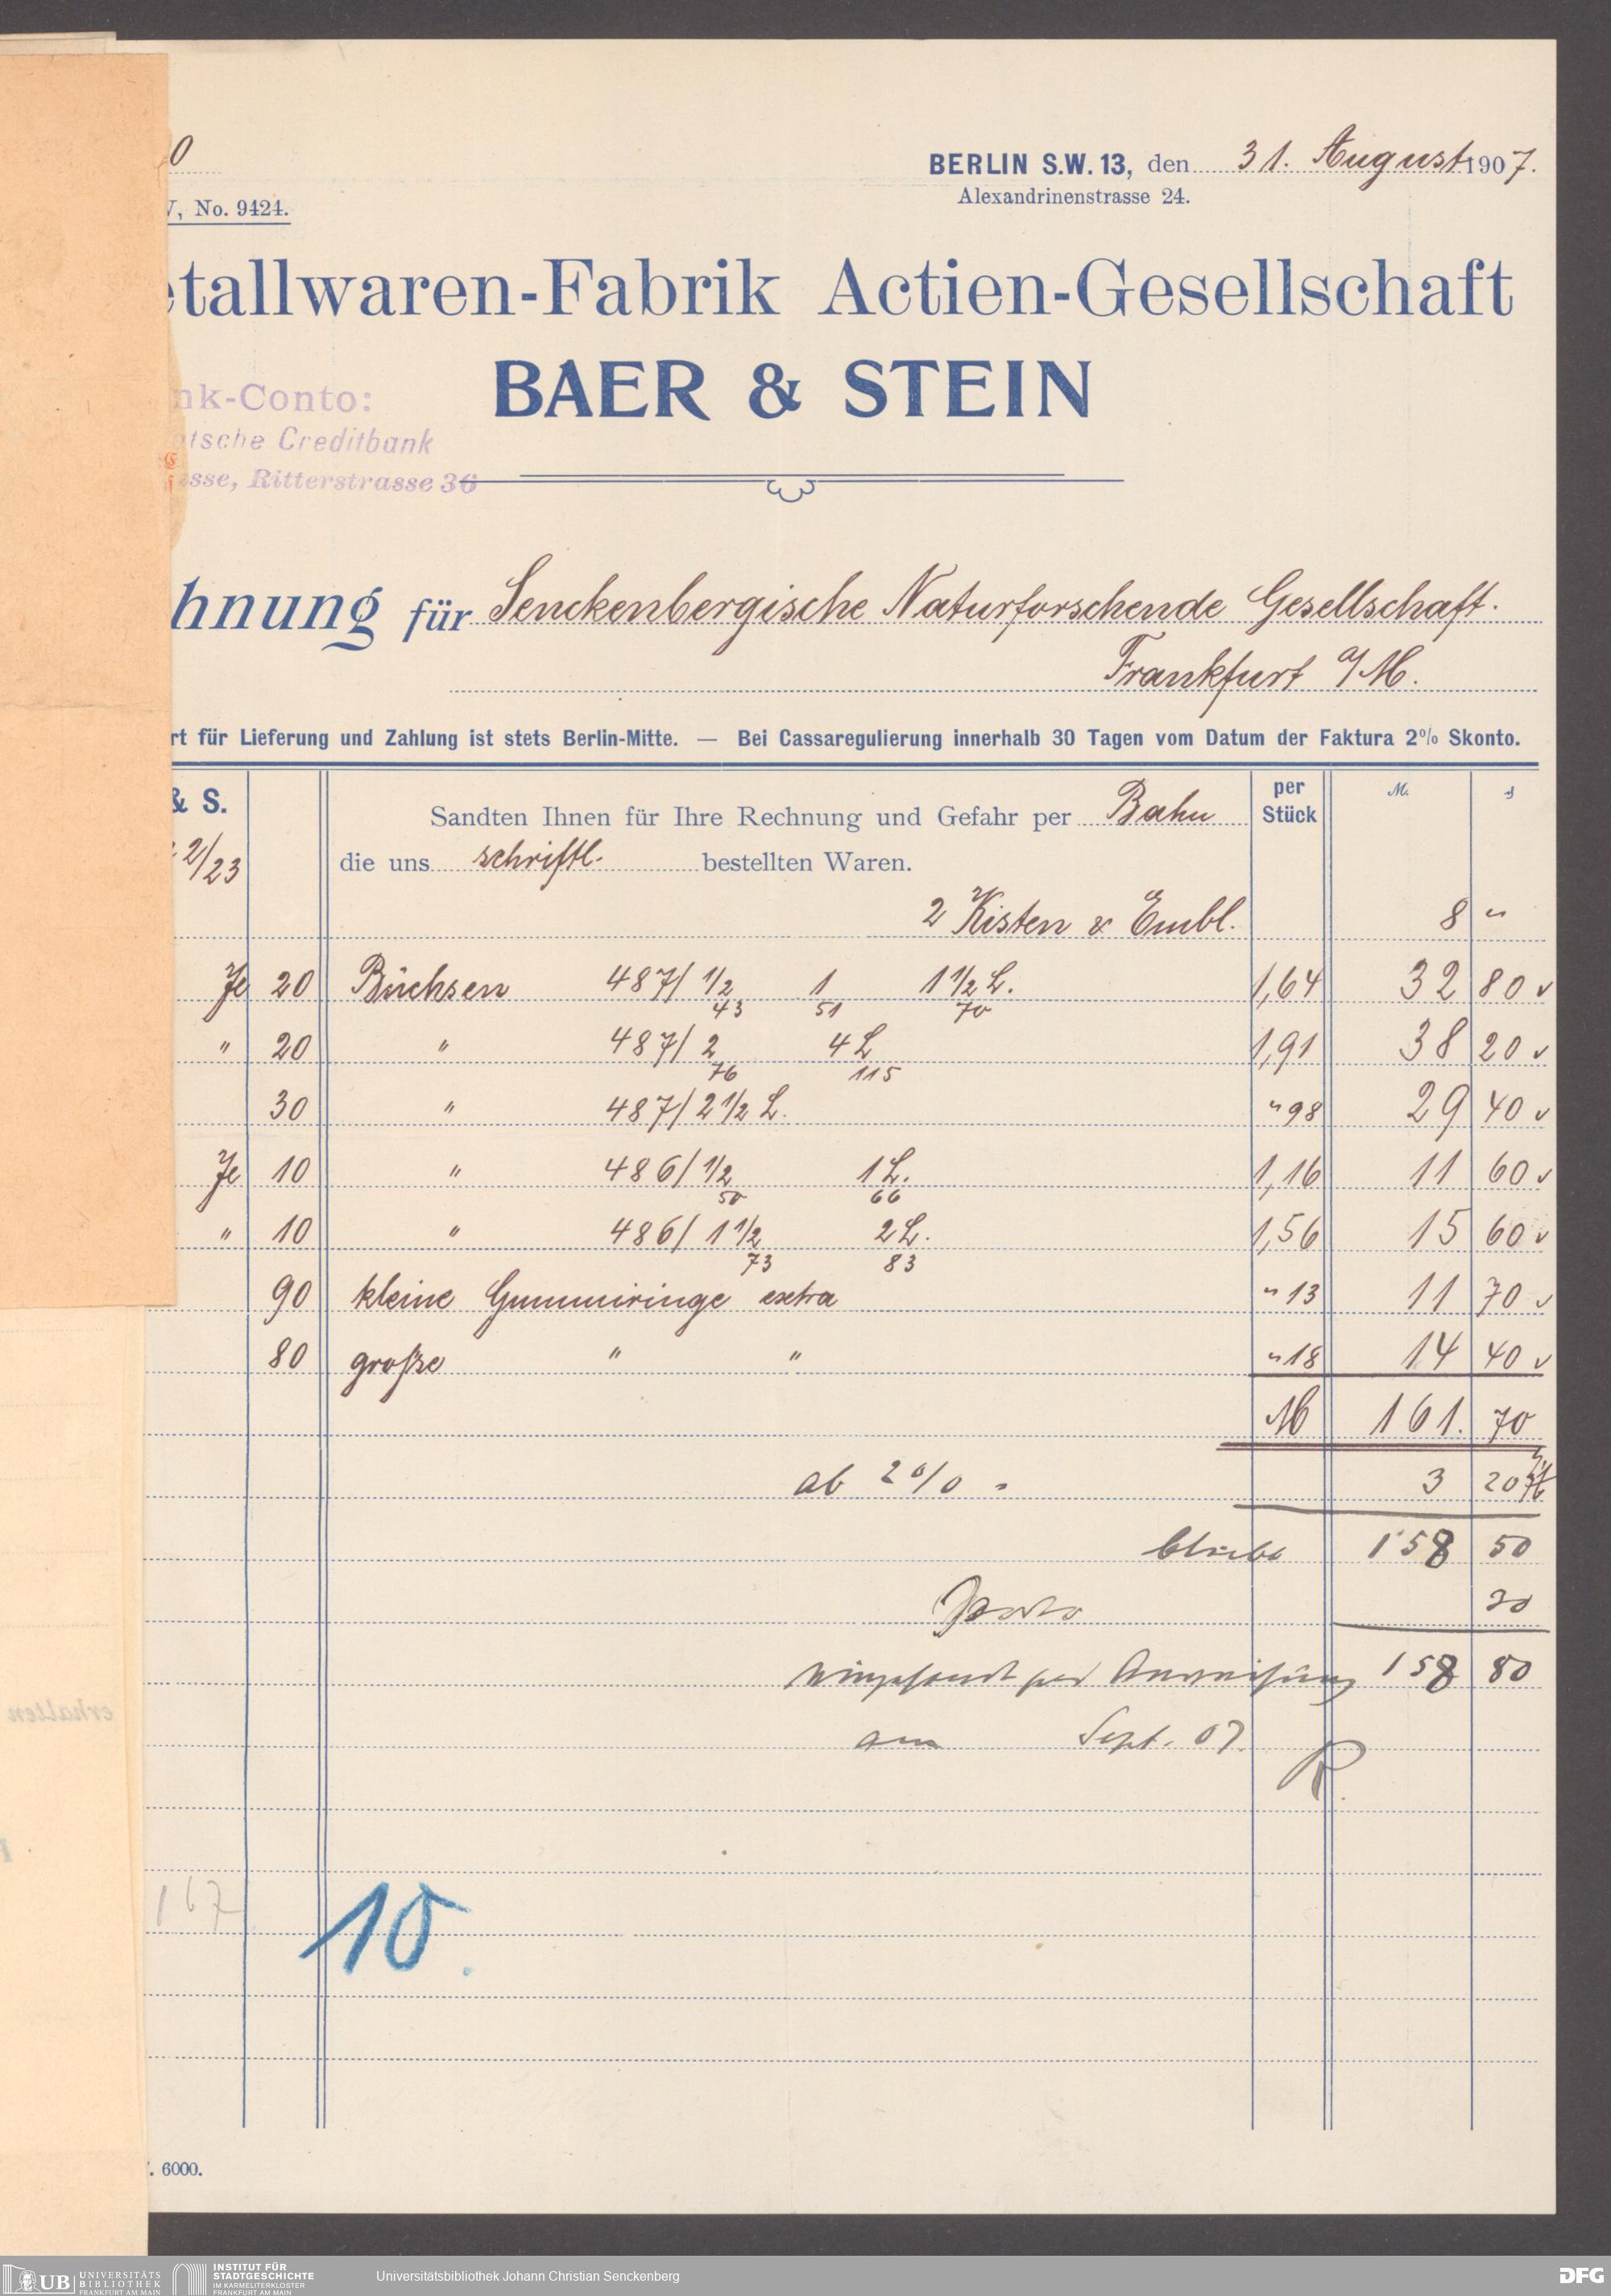 0
BERLIN S.W. 13, den 31. August 1907.
Alexandrinenstrasse 24.
V, No. 9424.
etallwaren-Fabrik Actien-Gesellschaft
BAER & STEIN
nk-Conto:
tsche Creditbank
sse, Ritterstrasse 36
hnung für Senckenbergische Naturforschende Gesellschaft.
Frankfurt a/M.
rt für Lieferung und Zahlung ist stets Berlin-Mitte. — Bei Cassaregulierung innerhalb 30 Tagen vom Datum der Faktura 2% Skonto.
& S.
2/23
Sandten Ihnen für Ihre Rechnung und Gefahr per Bahn
per Stück M. ₰
die uns schriftl. bestellten Waren.
2 Kisten & Embl. 8 "
Je 20 Büchsen 487/ 1/2 1 1 1/2 L. 1,64 32 80 v
43 51 70
" 20 " 487/ 2 4 L 1,91 38 20 v
76 115
30 " 487/ 2 1/2 L. " 98 29 40 v
Je 10 " 486/ 1/2 1 L. 1,16 11 60 v
50 66
" 10 " 486/ 1 1/2 2 L. 1,56 15 60 v
73 83
90 kleine Gummiringe extra " 13 11 70 v
80 große " " " 18 14 40 v
M 161. 70
ab 2% 3 20
bleibt 158 50
Porto 30
eingesandt per Anweisung 158 80
am Sept. 07.
R.
erhalten
167
10.
. 6000.
UB UNIVERSITÄTS
BIBLIOTHEK
FRANKFURT AM MAIN
INSTITUT FÜR
STADTGESCHICHTE
IM KARMELITERKLOSTER
FRANKFURT AM MAIN
Universitätsbibliothek Johann Christian Senckenberg
DFG